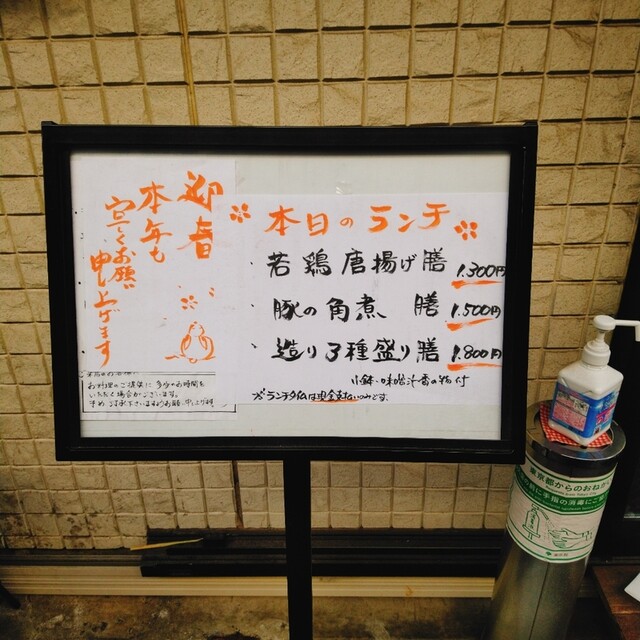 迎春
本年も
宜しくお願い
申し上げます
お料理のご提供に多少のお時間を
いただく場合がございます。
本日のランチ
若鶏唐揚げ膳 1.300円
豚の角煮 膳 1.500円
造り3種盛り膳 1.800円
小鉢・味噌汁・香の物付
※ランチタイムは現金支払いのみです。
東京都からのおねが
に手指の消毒にご